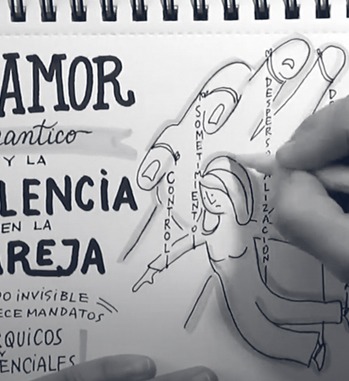 AMOR
mantico
Y LA
LENCIA
EN LA
AREJA
O INVISIBLE
ECE MANDATOS
RQUICOS
Y
ENCIALES
CONTROL
SOMETIMIENTO
DESPERSONALIZACIÓN
DE